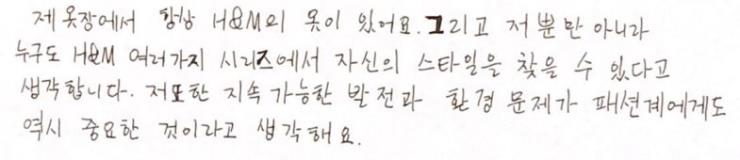 제 옷장에서 항상 H&M의 옷이 있어요. 그리고 저뿐만 아니라
누구도 H&M 여러가지 시리즈에서 자신의 스타일을 찾을 수 있다고
생각합니다. 저또한 지속 가능한 발전과 환경 문제가 패션계에게도
역시 중요한 것이라고 생각해요.